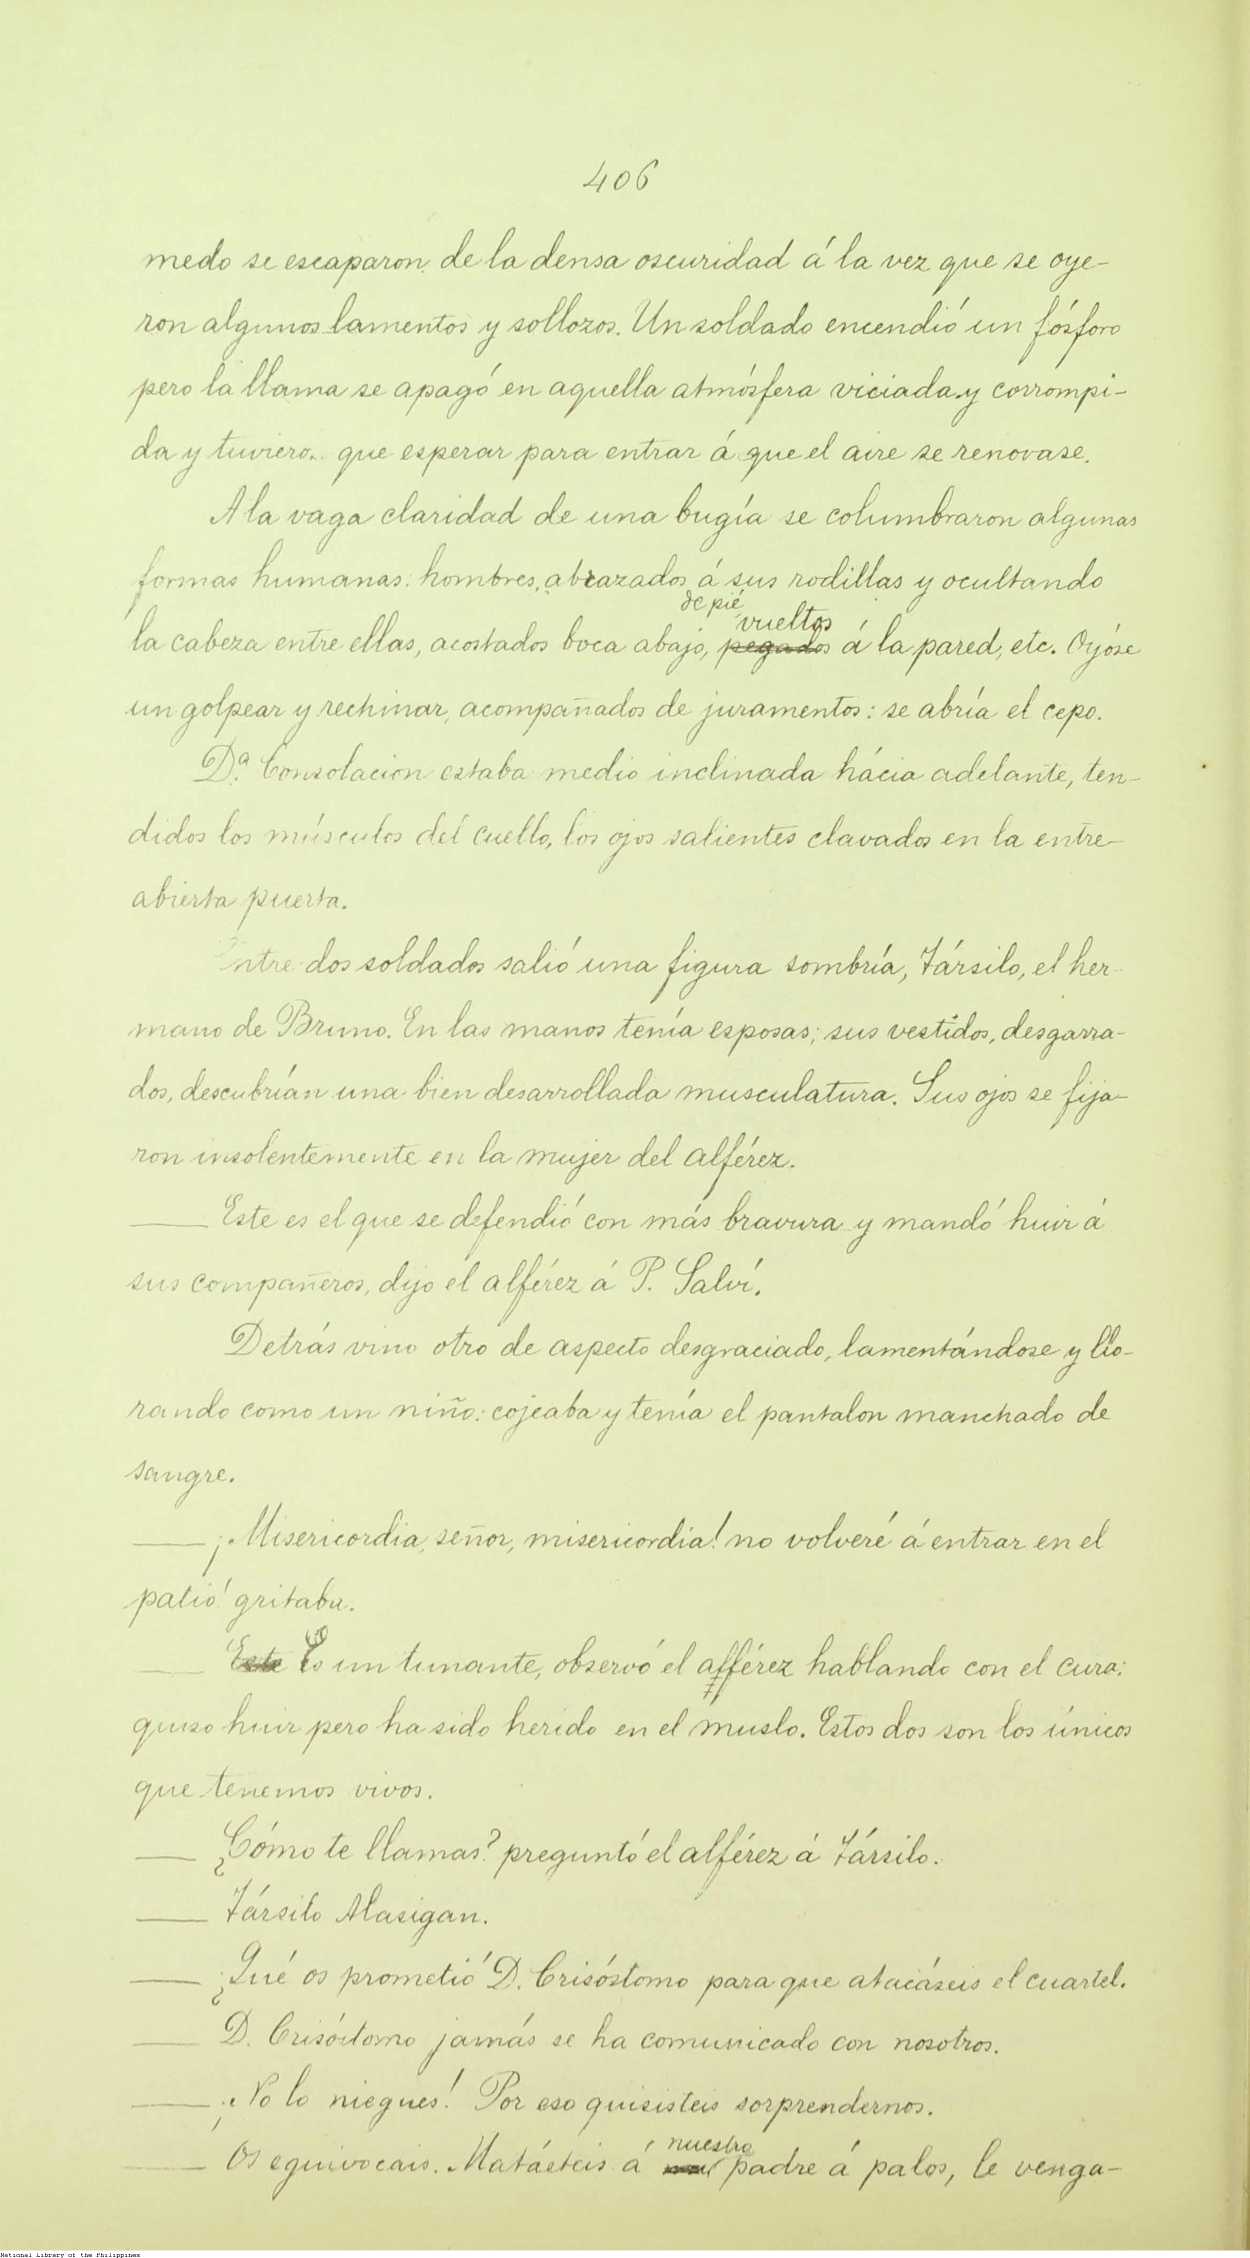 406
medo se escaparon de la densa oscuridad á la vez que se oye-
ron algunos lamentos y sollozos. Un soldado encendió un fósforo
pero la llama se apagó en aquella atmósfera viciada y corrompi-
da y tuviero. que esperar para entrar á que el aire se renovase.
A la vaga claridad de una bugía se columbraron algunas
formas humanas: hombres, abrazados á sus rodillas y ocultando
de pié, vueltos
la cabeza entre ellas, acostados boca abajo, pegados á la pared, etc. Oyóse
un golpear y rechinar, acompañados de juramentos: se abría el cepo.
Dª. Consolacion estaba medio inclinada hácia adelante, ten-
didos los músculos del cuello, los ojos salientes clavados en la entre-
abierta puerta.
Entre dos soldados salió una figura sombría, Társilo, el her-
mano de Bruno. En las manos tenía esposas; sus vestidos, desgarra-
dos, descubrían una bien desarrollada musculatura. Sus ojos se fija-
ron insolentemente en la mujer del alférez.
— Este es el que se defendió con más bravura y mandó huir á
sus compañeros, dijo el alférez á P. Salví.
Detrás vino otro de aspecto desgraciado, lamentándose y llo-
rando como un niño: cojeaba y tenía el pantalon manchado de
sangre.
— ¡Misericordia, señor, misericordia! no volveré á entrar en el
patio! gritaba.
— Este Es un tunante, observó el alférez hablando con el cura:
quiso huir pero ha sido herido en el muslo. Estos dos son los únicos
que tenemos vivos.
— ¿Cómo te llamas? preguntó el alférez á Társilo.
— Társilo Alasigan.
— ¿Qué os prometió D. Crisóstomo para que atacáseis el cuartel.
— D. Crisóstomo jamás se ha comunicado con nosotros.
— ¡No lo niegues! Por eso quisisteis sorprendernos.
nuestro
— Os equivocais. Matásteis á padre á palos, le venga-
National Library of the Philippines